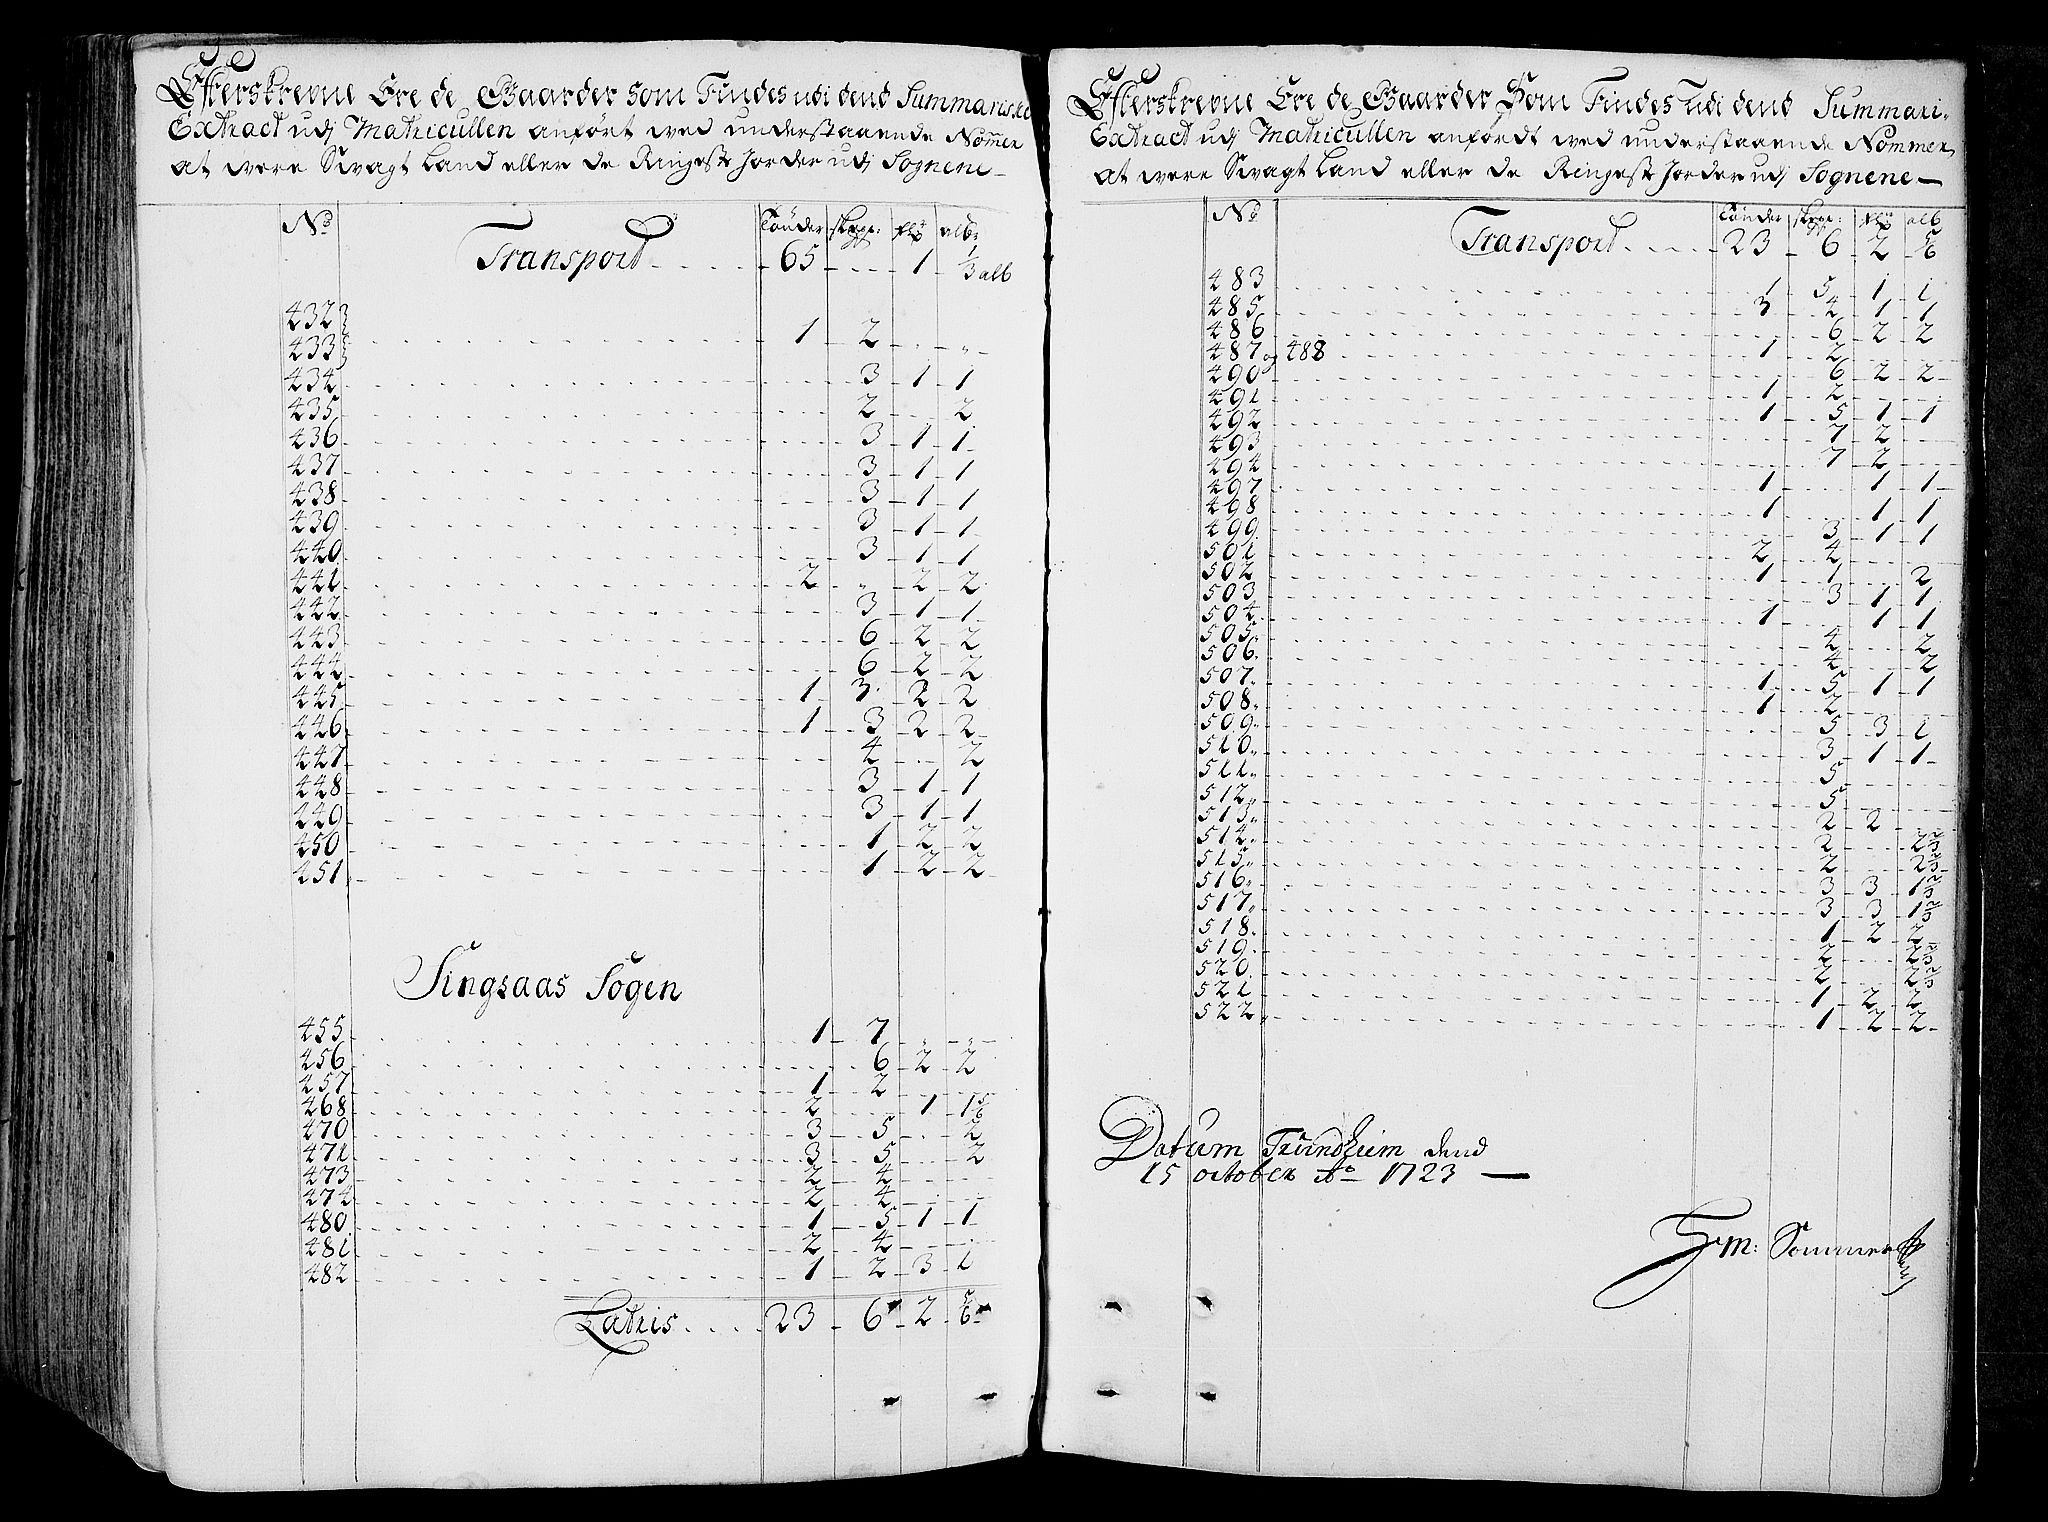 Efterskrevne Ere de Gaarder som Findes udi dend Summariske
Extract udj Matricullen anført ved understaaende Nommer
at vere Svagt Land eller de Ringeste Jorder udj Sognene
No Tønder skpe: flr alb:
Transport 65 1 1/3 alb
432
433 1 2
434 3 1 1
435 2 2
436 3 1 1
437 3 1 1
438 3 1 1
439 3 1 1
440 3 1 1
441 2 2 2
442 3 1 1
443 6 2 2
444 6 2 2
445 1 3 2 2
446 1 3 2 2
447 4 2
448 3 1 1
449 3 1 1
450 1 2 2
451 1 2 2
Singsaas Sogen
455 1 7
456 6 2 2
457 1 2
468 2 1 1 5/6
470 3 5 2
471 3 5 2
473 2 4
474 2 4
480 1 5 1 1
481 2 4
482 1 2 3 1
Latris 23 6 2 5/6
Efterskrevne Ere de Gaarder Som Findes udi dend Summari-
Extract udj Matricullen anfördt ved understaaende Nommer
at vere Svagt Land eller de Ringeste Jorder udj Sognene
No Tønder skpe: flr alb
Transport 23 6 2 5/6
483 1 5 1 1
485 3 4 1 1
486 6 2 2
487 og 488 1 2
490 6 2 2
491 1 2
492 1 5 1 1
493 7 2
494 7 2
497 1 1 1
498 1 1 1
499 3 1 1
501 2 4
502 1 1 2
503 3 1 1
504 1 1 1
505 4 2
506 4 2
507 1 5 1 1
508 1 2
509 5 3 1
510 3 1 1
511 5
512 5
513 2 2
514 2 2 2/3
515 2 2 2/3
516 3 3 1 2/3
517 3 3 1 2/3
518 1 2 2
519 2 2 2/3
520 2 2 2/3
521 1 2 2
522 1 2 2
Datum Trundheim dend
15 october Ao 1723
Sommer